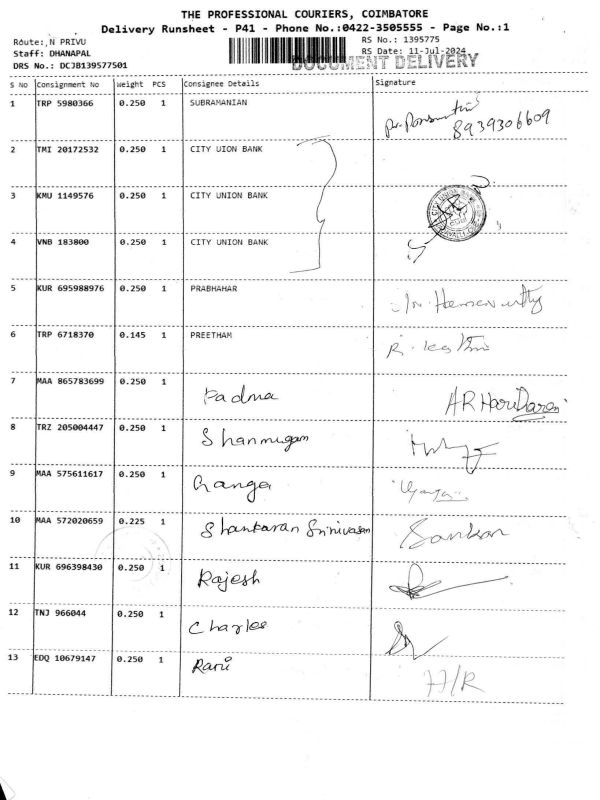 THE PROFESSIONAL COURIERS, COIMBATORE
Delivery Runsheet - P41 - Phone No.:0422-3505555 - Page No.:1
Route:,N PRIVU RS No.: 1395775
Staff: DHANAPAL RS Date: 11-Jul-2024
DOCUMENT DELIVERY
DRS No.: DCJB139577501
S No Consignment No Weight PCS Consignee Details Signature
1 TRP 5980366 0.250 1 SUBRAMANIAN
8939306609
2 TMI 20172532 0.250 1 CITY UION BANK
3 KMU 1149576 0.250 1 CITY UNION BANK
4 VNB 183800 0.250 1 CITY UNION BANK
5 KUR 695988976 0.250 1 PRABHAHAR
6 TRP 6718370 0.145 1 PREETHAM
7 MAA 865783699 0.250 1 Padma
8 TRZ 205004447 0.250 1 Shanmugam
9 MAA 575611617 0.250 1 Ganga
10 MAA 572020659 0.225 1 Shankaran Srinivasan Sankar
11 KUR 696398430 0.250 1 Rajesh
12 TNJ 966044 0.250 1 Charles
13 EDQ 10679147 0.250 1 Ravi